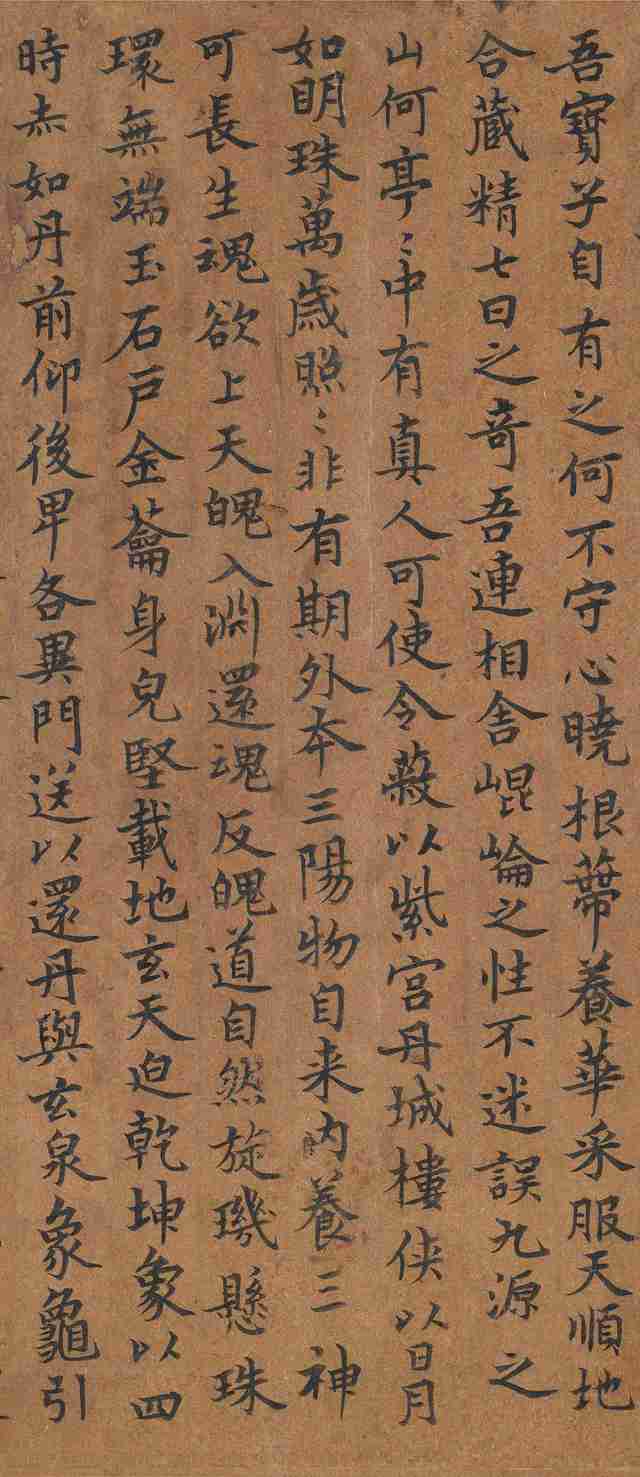 吾寶子自有之何不守心曉根蔕養華采服天順地
合藏精七日之竒吾連相舎崐崘之性不迷誤九源之
山何亭〻中有真人可使令蔽以紫宫丹城樓俠以日月
如明珠萬歳照〻非有期外本三陽物自来内養三神
可長生魂欲上天魄入淵還魂反魄道自然旋璣懸珠
環無端玉石戸金蘥身皃堅載地玄天迫乾坤象以四
時赤如丹前仰後卑各異門送以還丹與玄泉象龜引